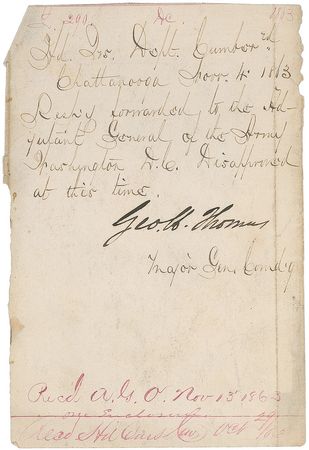 T. 290. DC. 1863
Hd. Qrs. Dept. Cumberd
Chattanooga Novr. 4. 1863
Resp'y forwarded to the Ad-
jutant General of the Army
Washington D.C. Disapproved
at this time.
Geo. H. Thomas
Major Gen. Comd'g
Recd. A.G.O. Nov 13 1863
one Enclosure
(Recd Hd Qrs Oct 29/63